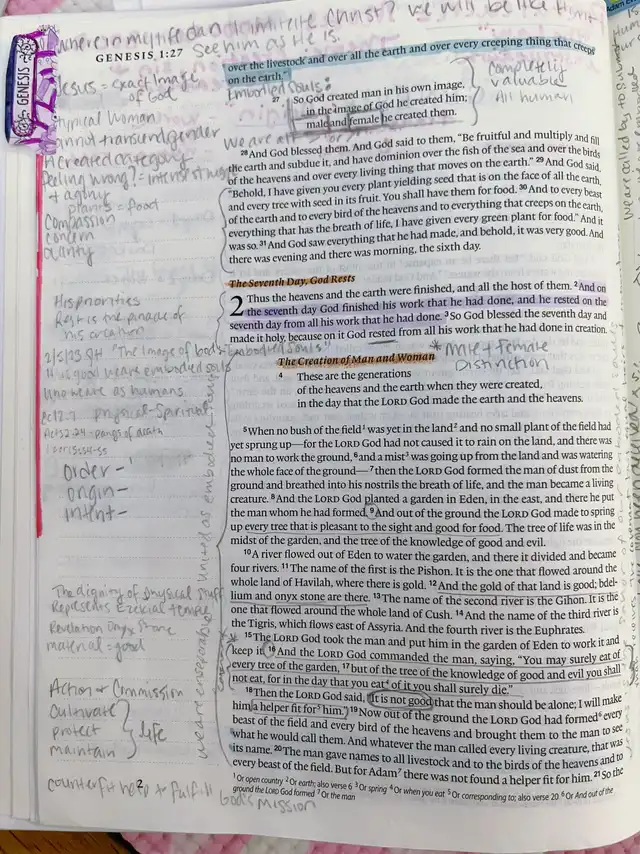 where in
Christ? we will be like
see him as He is.
GENESIS 1:27
GENESIS
over the livestock and over all the earth and over every creeping thing that creeps
on the earth."
Embodied souls:
completely
valuable
All human
27 So God created man in his own image,
in the image of God he created him;
male and female he created them.
Jesus = exact image
of God
woman
cannot transcend gender
A created category
Feeling wrong? =
+ agony
plants = food
Compassion
concern
Clarity
we are all
28 And God blessed them. And God said to them, "Be fruitful and multiply and fill
the earth and subdue it, and have dominion over the fish of the sea and over the birds
of the heavens and over every living thing that moves on the earth." 29 And God said,
"Behold, I have given you every plant yielding seed that is on the face of all the earth,
and every tree with seed in its fruit. You shall have them for food. 30 And to every beast
of the earth and to every bird of the heavens and to everything that creeps on the earth,
everything that has the breath of life, I have given every green plant for food." And it
was so. 31 And God saw everything that he had made, and behold, it was very good. And
there was evening and there was morning, the sixth day.
The Seventh Day, God Rests
2 Thus the heavens and the earth were finished, and all the host of them. 2 And on
the seventh day God finished his work that he had done, and he rested on the
seventh day from all his work that he had done. 3 So God blessed the seventh day and
made it holy, because on it God rested from all his work that he had done in creation.
His priorities
Rest is the pinacle of
his creation
2/5/23 SH "The Image of God's Embodied Souls"
It is good we are embodied souls
who we are as humans
physical-Spiritual
Acts 2:24 - pangs of death
order -
origin -
intent -
The Creation of Man and Woman
* Male + Female
Distinction
4 These are the generations
of the heavens and the earth when they were created,
in the day that the LORD God made the earth and the heavens.
5 When no bush of the field1 was yet in the land2 and no small plant of the field had
yet sprung up—for the LORD God had not caused it to rain on the land, and there was
no man to work the ground, 6 and a mist3 was going up from the land and was watering
the whole face of the ground— 7 then the LORD God formed the man of dust from the
ground and breathed into his nostrils the breath of life, and the man became a living
creature. 8 And the LORD God planted a garden in Eden, in the east, and there he put
the man whom he had formed. 9 And out of the ground the LORD God made to spring
up every tree that is pleasant to the sight and good for food. The tree of life was in the
midst of the garden, and the tree of the knowledge of good and evil.
10 A river flowed out of Eden to water the garden, and there it divided and became
four rivers. 11 The name of the first is the Pishon. It is the one that flowed around the
whole land of Havilah, where there is gold. 12 And the gold of that land is good; bdel-
lium and onyx stone are there. 13 The name of the second river is the Gihon. It is the
one that flowed around the whole land of Cush. 14 And the name of the third river is
the Tigris, which flows east of Assyria. And the fourth river is the Euphrates.
15 The LORD God took the man and put him in the garden of Eden to work it and
keep it. 16 And the LORD God commanded the man, saying, "You may surely eat of
every tree of the garden, 17 but of the tree of the knowledge of good and evil you shall
not eat, for in the day that you eat4 of it you shall surely die."
18 Then the LORD God said, "It is not good that the man should be alone; I will make
him a helper fit for5 him." 19 Now out of the ground the LORD God had formed6 every
beast of the field and every bird of the heavens and brought them to the man to see
what he would call them. And whatever the man called every living creature, that was
its name. 20 The man gave names to all livestock and to the birds of the heavens and to
every beast of the field. But for Adam7 there was not found a helper fit for him. 21 So the
The dignity of physical stuff
Represents Ezekial temple
Revelation Onyx stone
material = good
Action + Commission
Cultivate
protect
maintain
life
help to fulfill
God's mission
we are inseparable united as embodied
1 Or open country 2 Or earth; also verse 6 3 Or spring 4 Or when you eat 5 Or corresponding to; also verse 20 6 Or And out of the
ground the LORD God formed 7 Or the man
we are called by